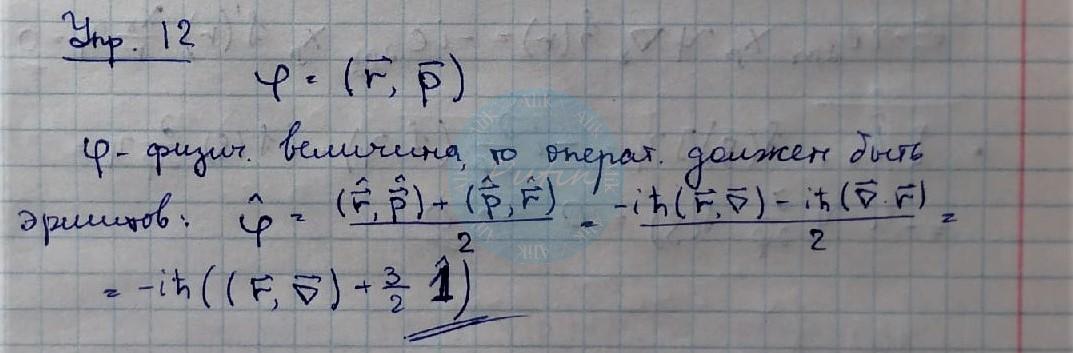 Упр. 12
φ = (r⃗, p⃗)
φ - физич. величина, то операт. должен быть
эрмитов: φ̂ = ((r⃗̂, p⃗̂) + (p⃗̂, r⃗̂))/2 = (-iħ(r⃗, ∇⃗) - iħ(∇⃗.r⃗))/2 =
= -iħ((r⃗, ∇⃗) + 3/2 1̂)